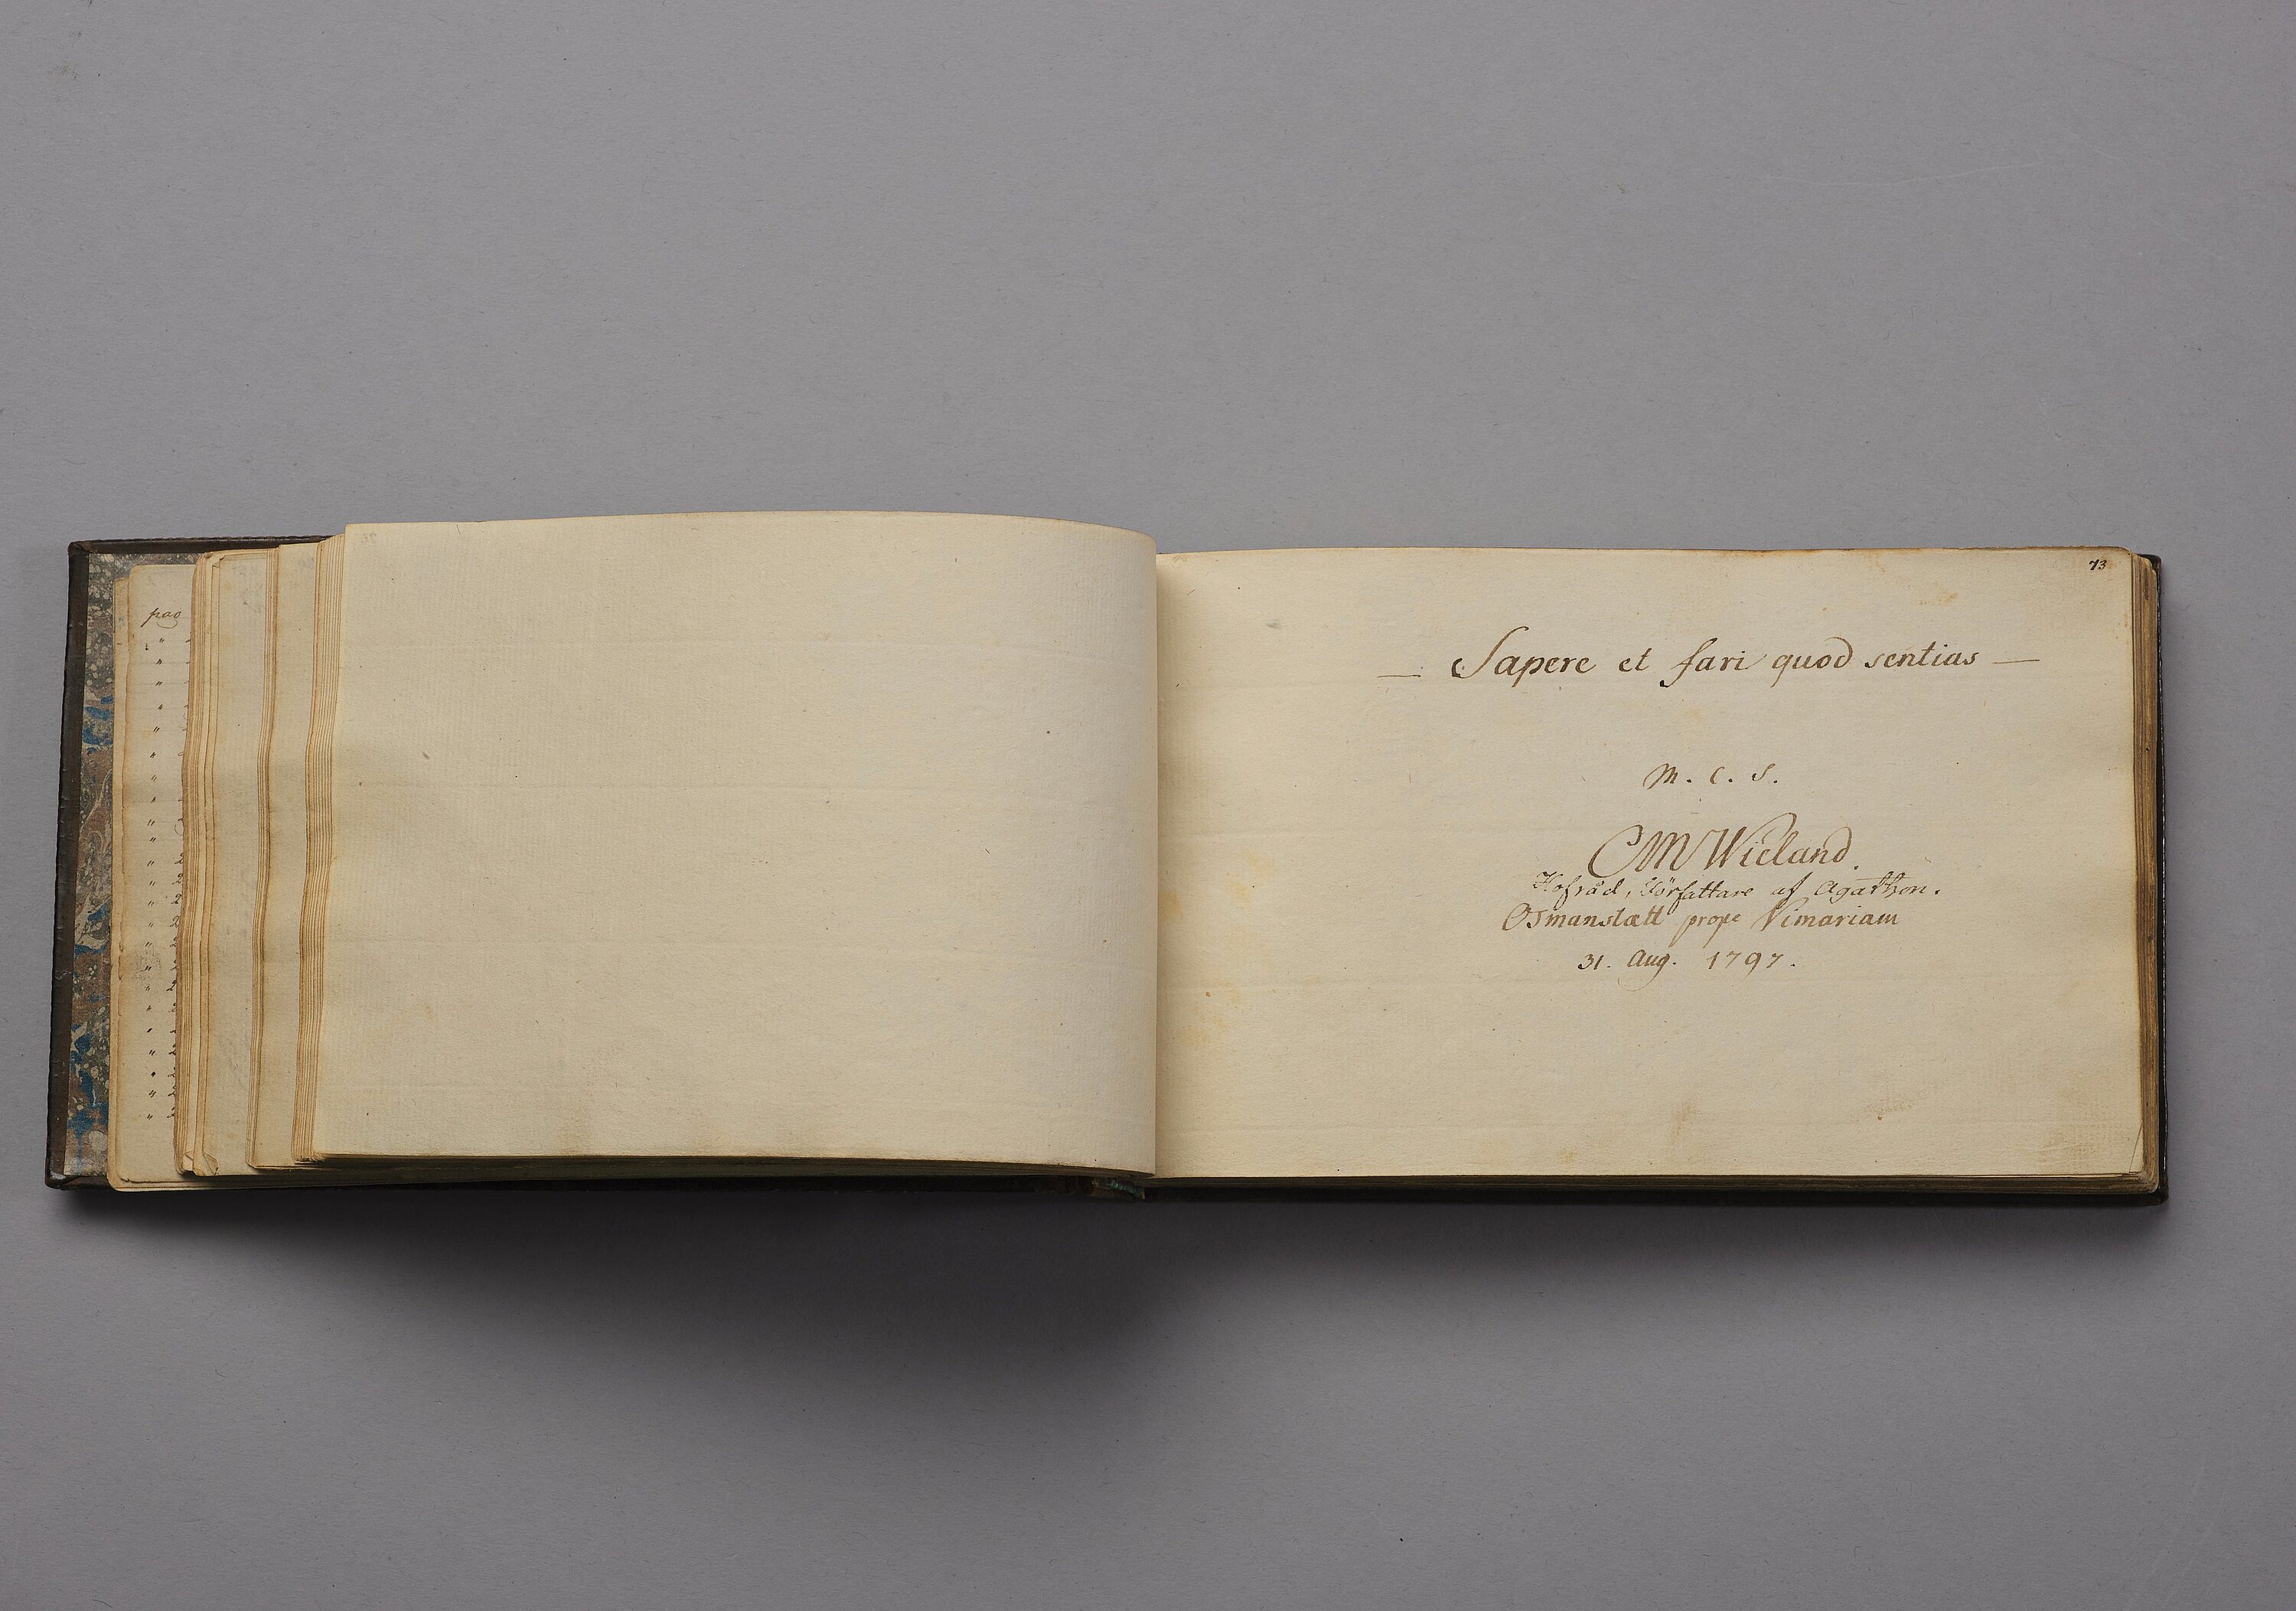 pag
73
— Sapere et fari quod sentias —
M. C. S.
CMWieland.
Hofråd, Författare af Agathon.
Osmanstætt prope Vimariam
31. Aug. 1797.